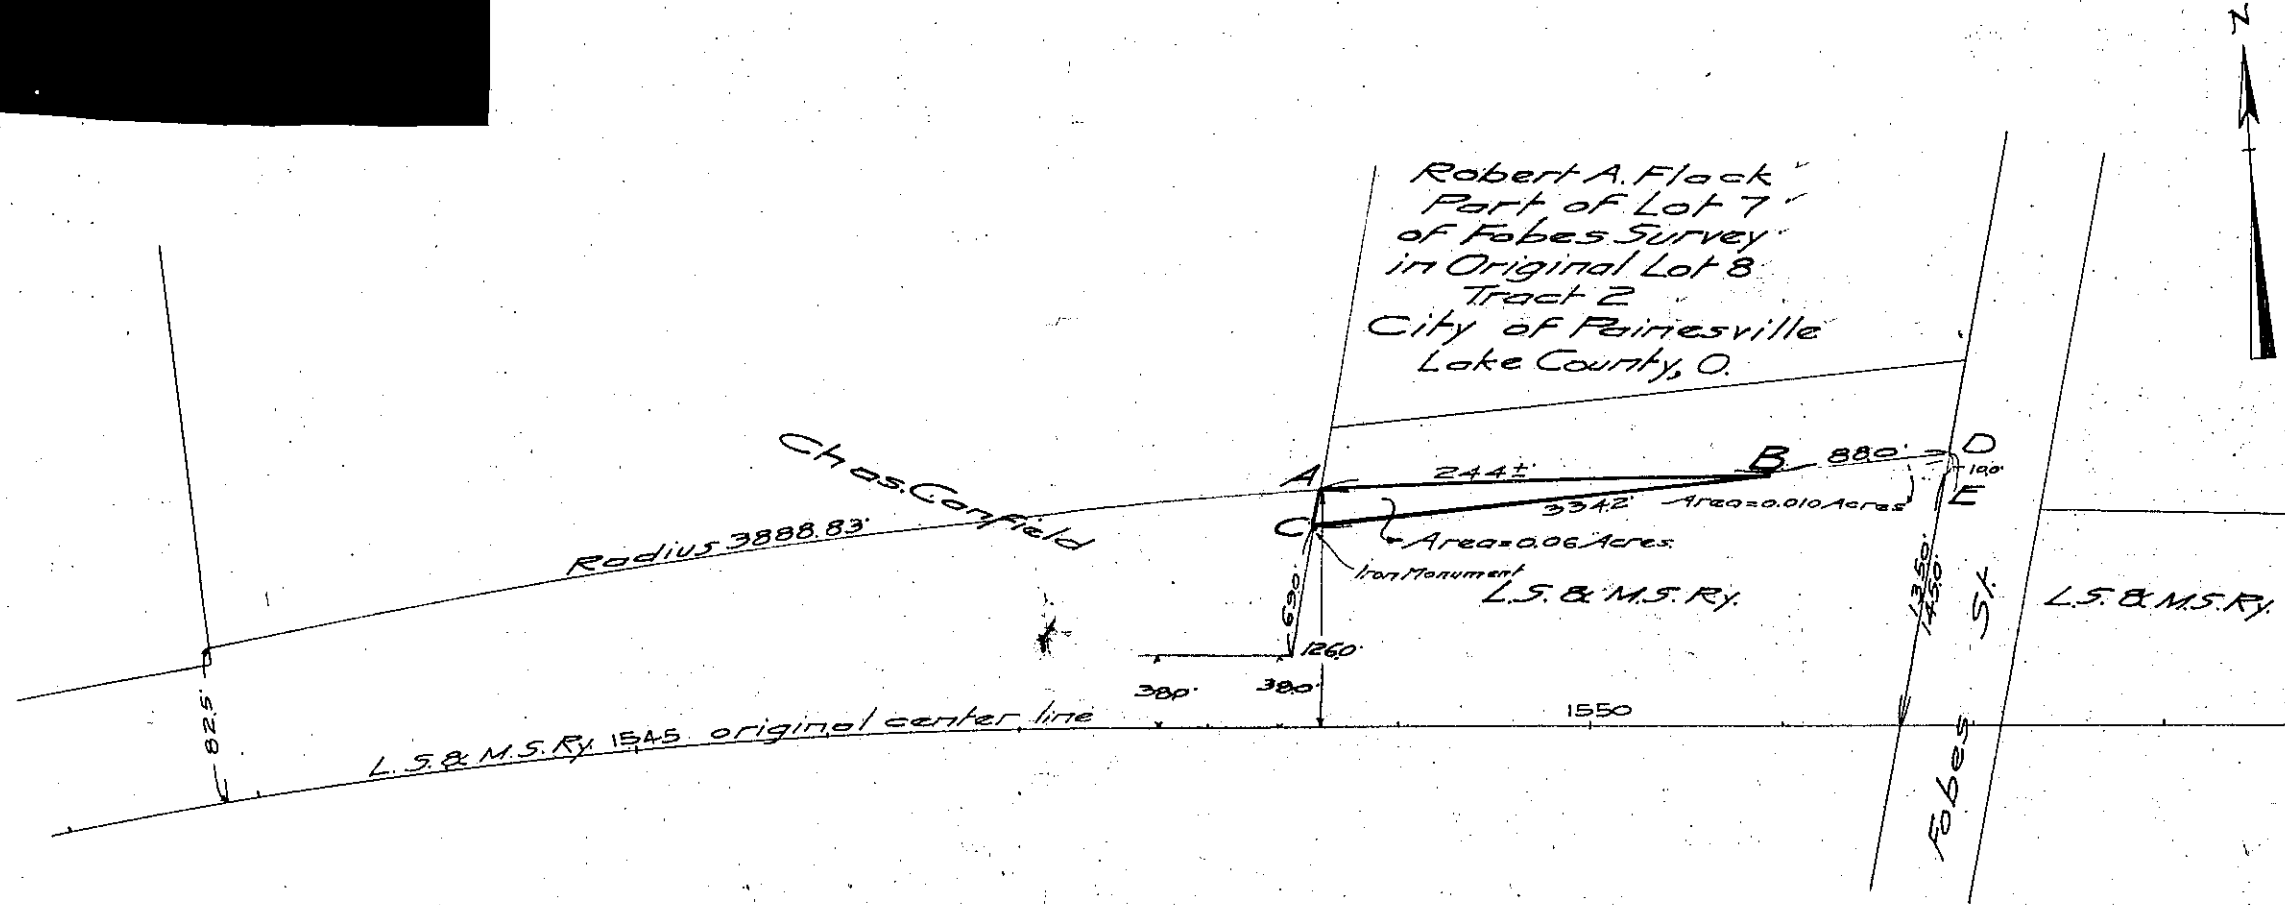 N
Robert A. Flack
Part of Lot 7
of Fobes Survey
in Original Lot 8
Tract 2
City of Painesville
Lake County, O.
Chas. Canfield
Radius 3888.83'
A
244±'
B
88.0'
D
10.0'
E
C
334.2'
Area=0.010 Acres
Area=0.06 Acres.
Iron Monument
L.S. & M.S. Ry.
L.S. & M.S. Ry.
69.0'
126.0'
135.0'
145.0'
38.0'
38.0'
82.5'
L.S. & M.S. Ry. 1545 original center line
1550
Fobes St.